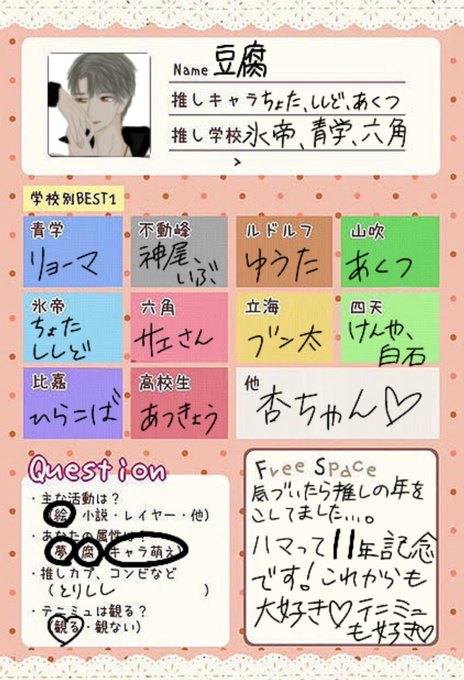 Name 豆腐
推しキャラ ちょた、ししど、あくつ
推し学校 氷帝、青学、六角
>
学校別BEST1
青学
リョーマ
不動峰
神尾、
いぶ
ルドルフ
ゆうた
山吹
あくつ
氷帝
ちょた
ししど
六角
サエさん
立海
ブン太
四天
けんや、
白石
比嘉
ひらこば
高校生
あつきょう
他
杏ちゃん♡
Question
・主な活動は?
(絵・小説・レイヤー・他)
・あなたの属性は?
(夢・腐・キャラ萌え)
・推しカプ、コンビなど
(とりしし)
・テニミュは観る?
(観る・観ない)
Free Space
気づいたら推しの年を
こしてました…。
ハマって11年記念
です!これからも
大好き♡テニミュ
も好き♡